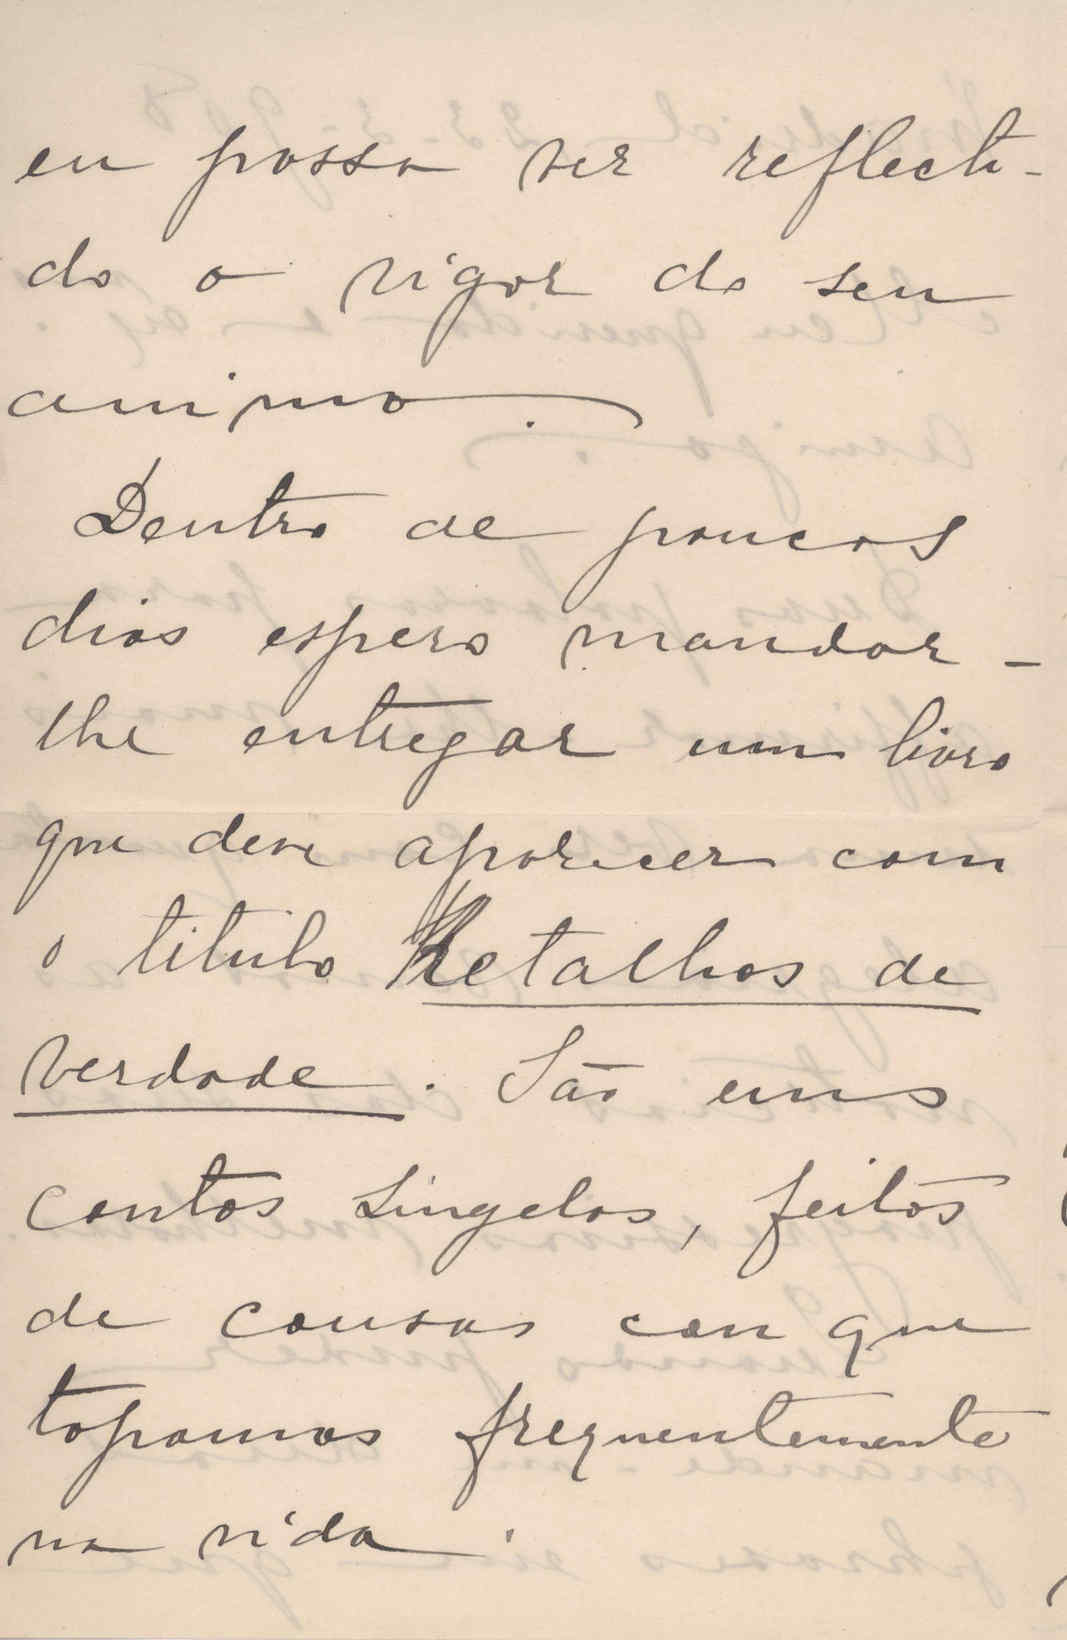 eu possa ver reflecti-
do o vigor do seu
animo.
Dentro de poucos
dias espero mandar-
lhe entregar um livro
que deve aparecer com
o titulo Retalhos de
verdade. São uns
contos singelos, feitos
de cousas com que
topamos frequentemente
na vida.